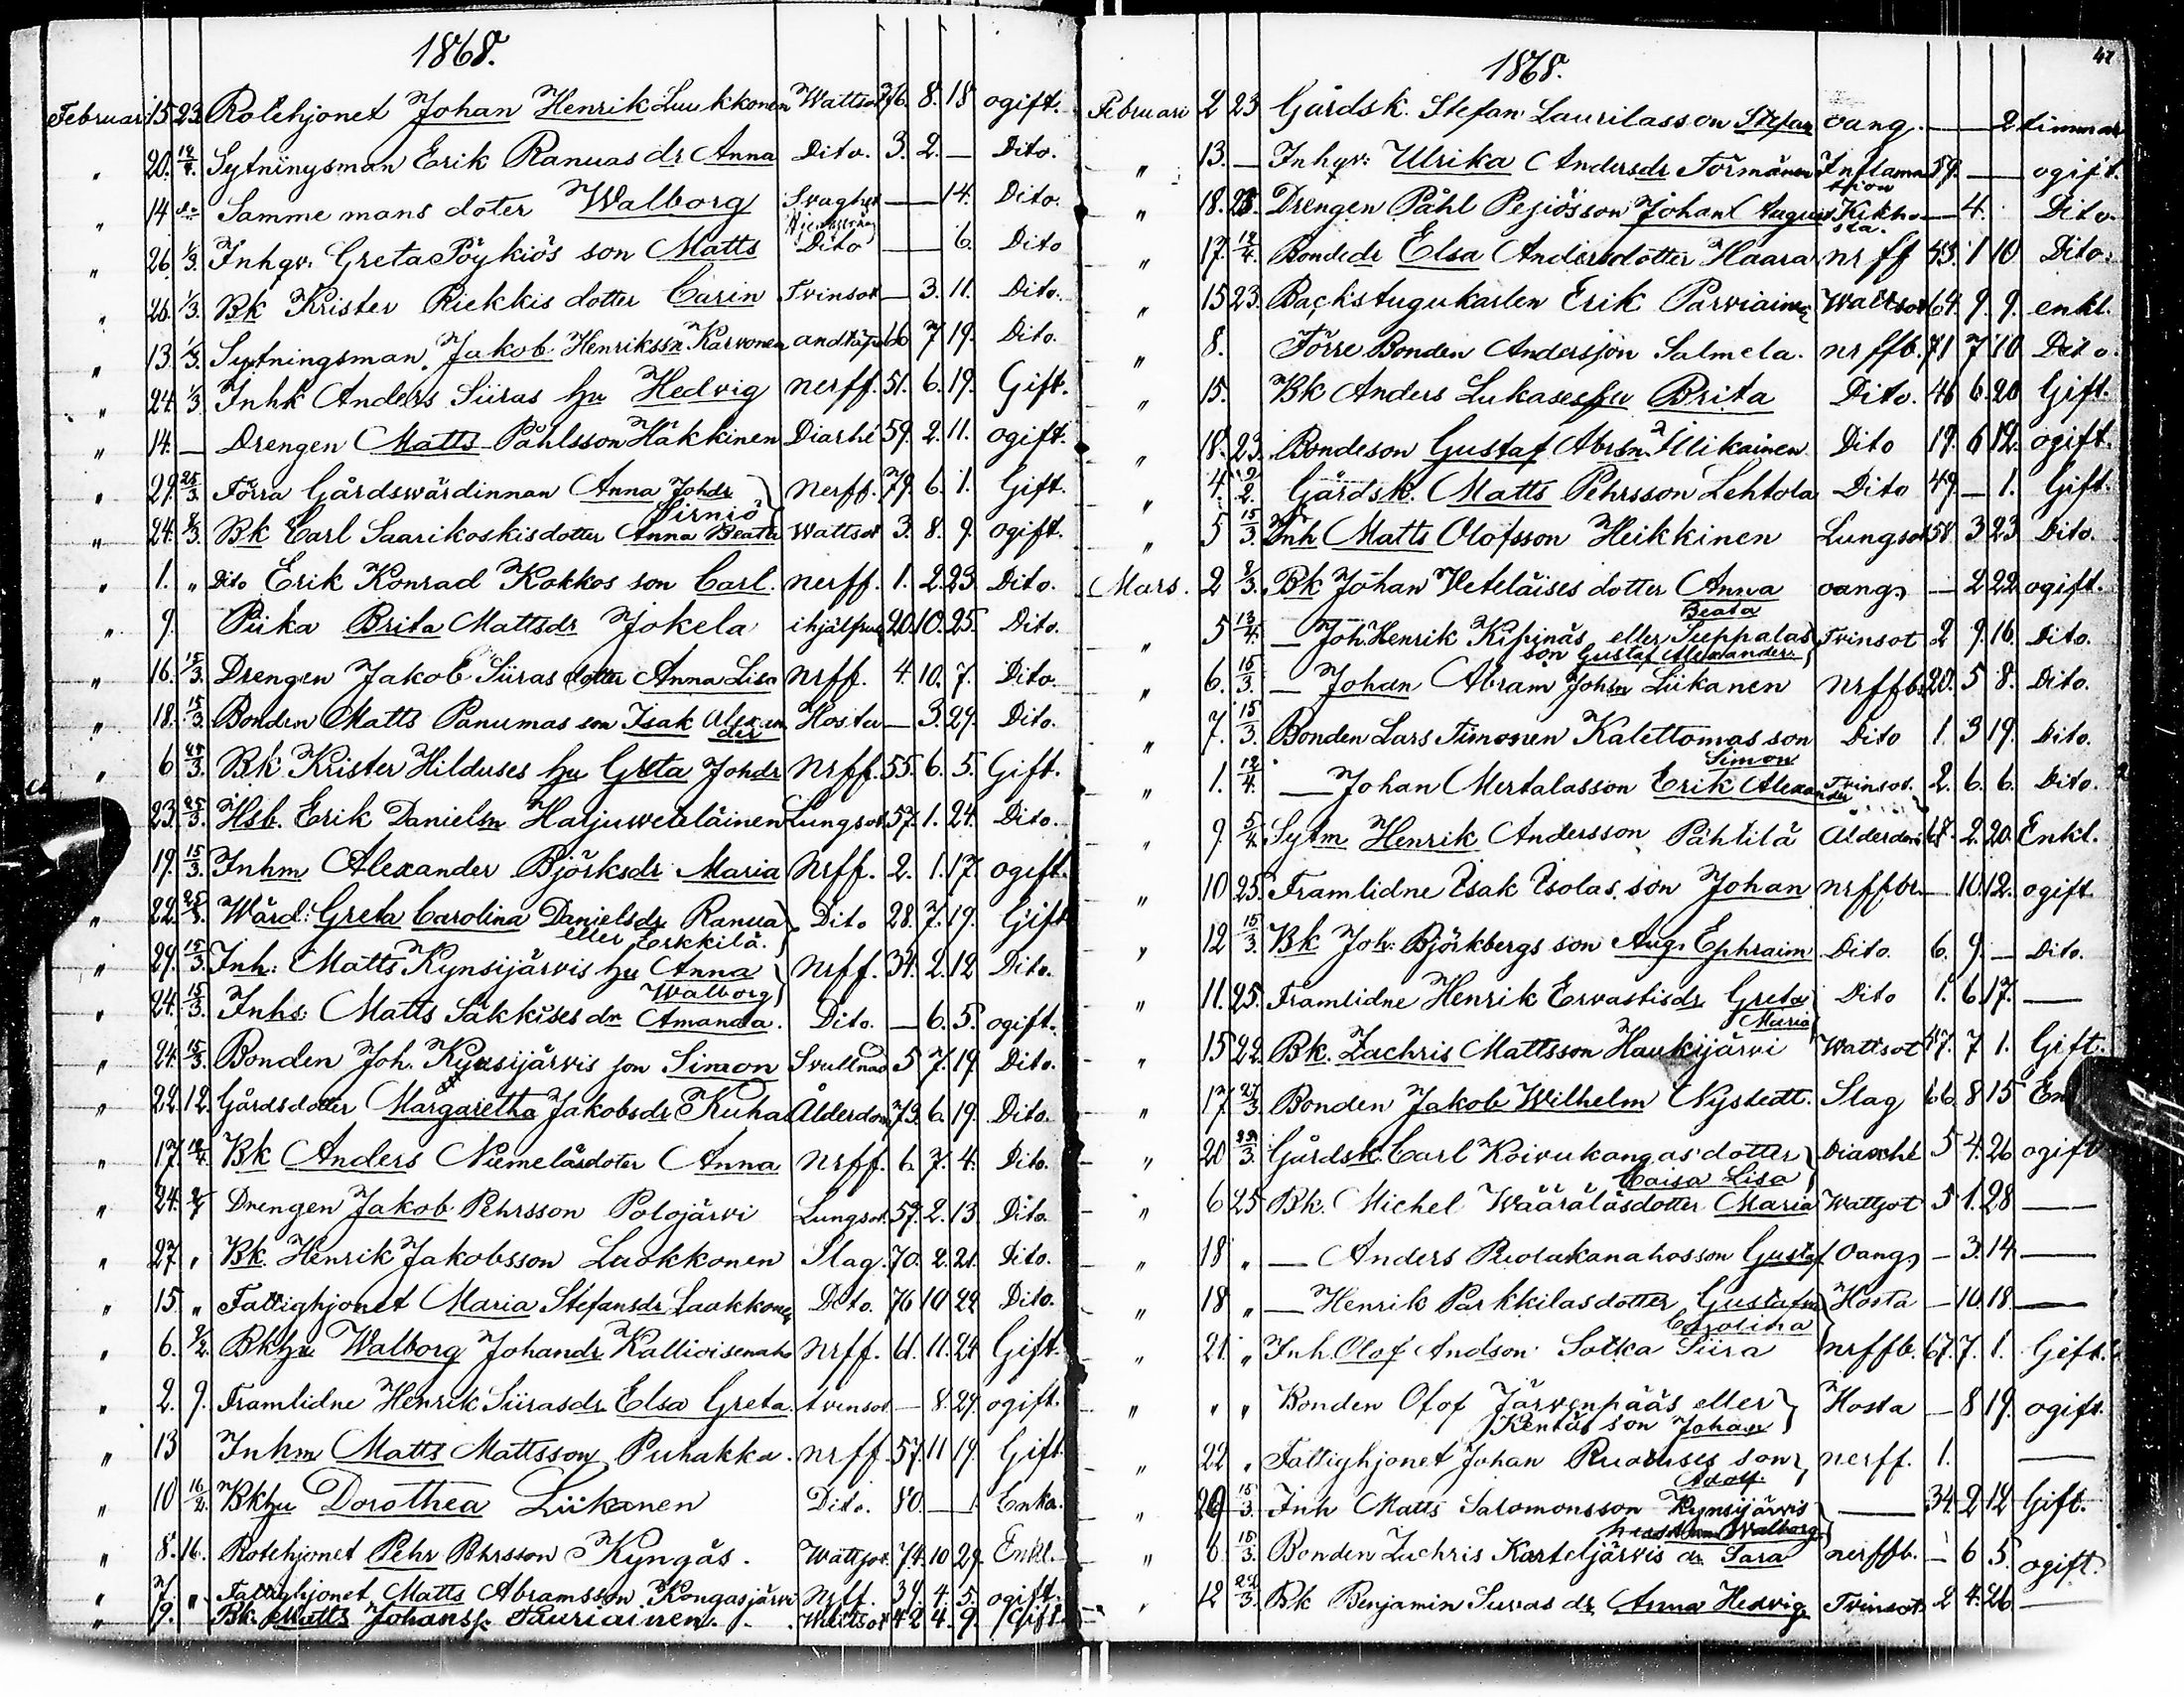 1868.
Februari 15 23. Rotehjonet Johan Henrik Luukkonen Wattsot 76. 8. 18 ogift.
" 20. 12/4. Sytningsman Erik Ranuas dr Anna Dito. 3. 2. — Dito.
" 14 Samme mans doter Walborg Svaghet — 14. Dito.
" 26. 1/3. Inhgv. Greta Pöykiös son Matts Dito — 6. Dito
" 26. 1/3. Bk Krister Riekkis dotter Carin Tvinsot — 3. 11. Dito.
" 13. 1/3. Sytningsman. Jakob Henrikssn Karvonen 7 19. Dito.
" 24. 1/3. Inhk Anders Siiras hu Hedvig nerff. 51. 6. 19. Gift.
" 14. — Drengen Matts Påhlsson Häkkinen Diarhe 59. 2. 11. ogift.
" 29. 25/3. Förra Gårdswärdinnan Anna Johdr Sirniö nerff. 79. 6. 1. Gift.
" 24. 8/3. Bk Carl Saarikoskis dotter Anna Beata Wattsot 3. 8. 9. ogift.
" 1. " Dito Erik Konrad Kokkos son Carl. nerff. 1. 2. 23. Dito.
" 9. Piika Brita Mattsdr Jokela 20. 10. 25. Dito.
" 16. 15/3. Drengen Jakob Siiras dotter Anna Lisa nrff. 4. 10. 7. Dito.
" 18. 15/3. Bonden Matts Panumas son Isak Alexander Hosta — 3. 29. Dito.
" 6 25/3. Bk Krister Hilduses hu Greta Johdr nrff. 55. 6. 5. Gift.
" 23. 25/3. Hsb. Erik Danielsn Harjuweteläinen Lungsot. 57. 1. 24. Dito.
" 19. 15/3. Inhm Alexander Björksdr Maria Nrff. 2. 1. 17. ogift.
" 22. 25/3. Wärd: Greta Carolina Danielsdr Ranua eller Erkkilä. Dito 28. 7. 19. Gift
" 29. 15/3. Inh: Matts Kynsijärvis hu Anna Walborg Nrff. 34. 2. 12 Dito.
" 24. 15/3. Inhs: Matts Säkkises dr Amanda. Dito. — 6. 5. ogift.
" 24. 15/3. Bonden Joh. Kynsijärvis son Simon Svullnad 5 7. 19 Dito.
" 22. 12. Gårdsdotter Margaretha Jakobsdr Kuha Ålderdom 73. 6. 19. Dito.
" 17. 12/4. Bk Anders Niemeläsdoter Anna Nrff. 6. 7. 4. Dito.
" 24. Drengen Jakob Pehrsson Polojärvi Lungsot. 57. 2. 13. Dito.
" 27 " Bk. Henrik Jakobsson Luokkonen Slag. 70. 2. 21. Dito.
" 15 " Fattighjonet Maria Stefansdr Laakkonen Dito. 76 10 22 Dito.
" 6. 9/2. Bkhu Walborg Johandr Kallioisenaho Nrff. 61. 11. 24 Gift.
" 2. 9. Framlidne Henrik Siirasdr Elsa Greta. tvinsot. — 8. 29. ogift.
" 13 Inhm Matts Mattsson Puhakka. nrff. 57. 11 19. Gift.
" 10 16/2. Bkhu Dorothea Liikanen Dito. 80. — 1. Enka.
" 8. 16. Rotehjonet Pehr Pehrsson Kyngäs. Wattsot. 74. 10 29. Enkl.
" 7. " Fattighjonet Matts Abramsson Kongasjärvi Nrff. 39. 4. 5. ogift.
" 19. Bk. Matts Johanss. Tauriainen. Wattsot 42 4. 9. Gift.
42
1868.
Februari 2 23 Gårdsk. Stefan Laurilasson Stefan oang. — — 2 timmar
" 13. — Inhgv: Ulrika Andersdr Törmänen Inflamation 59. — ogift.
" 18. 23. Drengen Påhl Pejiösson Johan August Kikhosta. — 4. Dito.
" 17. 12/4. Bondedr Elsa Andersdotter Haara nrff 43. 1 10 Dito.
" 15 23. Backstugukarlen Erik Parviainen Wattsot 64. 9. 9. enkl.
" 8. Förre Bonden Andersson Salmela. nrffb. 71 7 10 Dito.
" 15. Bk Anders Lukases hu Brita Dito. 46 6. 20 Gift.
" 18. 23. Bondeson Gustaf Abrsn Ulikainen Dito 19. 6 12. ogift.
" 4. 9/2. Gårdsk. Matts Pehrsson Lehtola Dito 49. — 1. Gift.
" 5 15/3. Inh Matts Olofsson Heikkinen Lungsot 58. 3 23 Dito.
Mars. 2 8/3. Bk Johan Veteläises dotter Anna Beata oang. — 2 22 ogift.
" 5 13/4. — Joh. Henrik Kipinäs eller Seppalas son Gustaf Alexander. Tvinsot 2 9. 16. Dito.
" 6. 15/3. — Johan Abram Johsn Liikanen Nrffb. 20. 5 8. Dito.
" 7. 15/3. Bonden Lars Timosen Kalettomas son Simon Dito 1. 3 19. Dito.
" 1. 12/4. — Johan Mertalasson Erik Alexander Tvinsot. 2. 6. 6. Dito.
" 9. 5/4. Sytm Henrik Andersson Pahtila Ålderdom 67. 2. 20. Enkl.
" 10 25. Framlidne Isak Isolas son Johan nrffbr — 10. 12. ogift
" 12 15/3. Bk Joh. Björkbergs son Aug. Ephraim Dito. 6. 9. — Dito.
" 11. 25. Framlidne Henrik Ervastisdr Greta Maria Dito 1. 6. 17. —
" 15 22. Bk. Zachris Mattsson Haukijärvi Wattsot 47. 7 1. Gift.
" 17 27/3. Bonden Jakob Wilhelm Nystedt. Slag 66. 8 15 En
" 20 29/3. Gårdsk. Carl Koivukangas dotter Caisa Lisa Diarrhé 5 4. 26 ogift
" 6 25 Bk. Michel Wääräläsdotter Maria Wattsot 5 1. 28 —
" 18 " — Anders Puolakanahosson Gustaf Oang. — 3. 14 —
" 18 " — Henrik Parkkilasdotter Gustafva Carolina Hosta — 10. 18. —
" 21. " Inh. Olof Andson Sotka Siira nrffb. 67. 7. 1. Gift.
" " " Bonden Olof Järvenpääs eller Kentäs son Johan Hosta — 8 19. ogift.
" 22 " Fattighjonet Johan Ruotuses son Adolf. nerff. 1. —
" 29 15/3. Inh Matts Salomonsson Kynsijärvis Walborg — 34. 2 12 Gift.
" 6 15/3. Bonden Zachris Karteljärvis dr Sara nerffb. — 6 5. ogift.
" 12 22/3. Bk Benjamin Suvas dr Anna Hedvig Tvinsot 2 4. 26 —